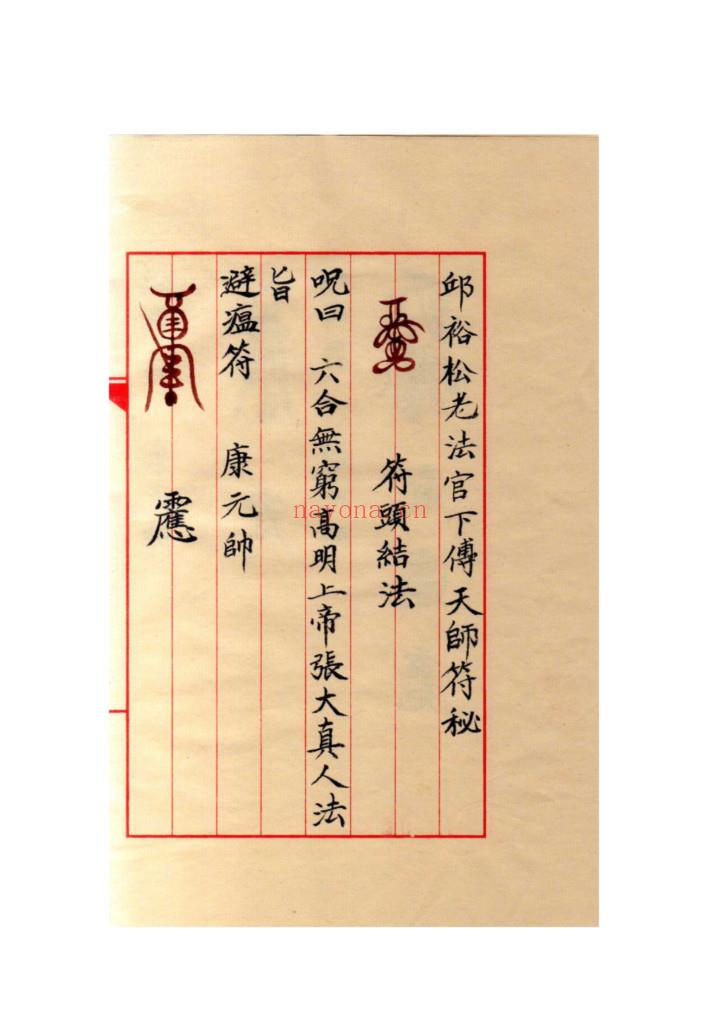 邱裕松老法官下傅天師符秘
符頭結法
呪曰 六合無窮高明上帝張大真人法
旨
避瘟符 康元帥
nayona.cn